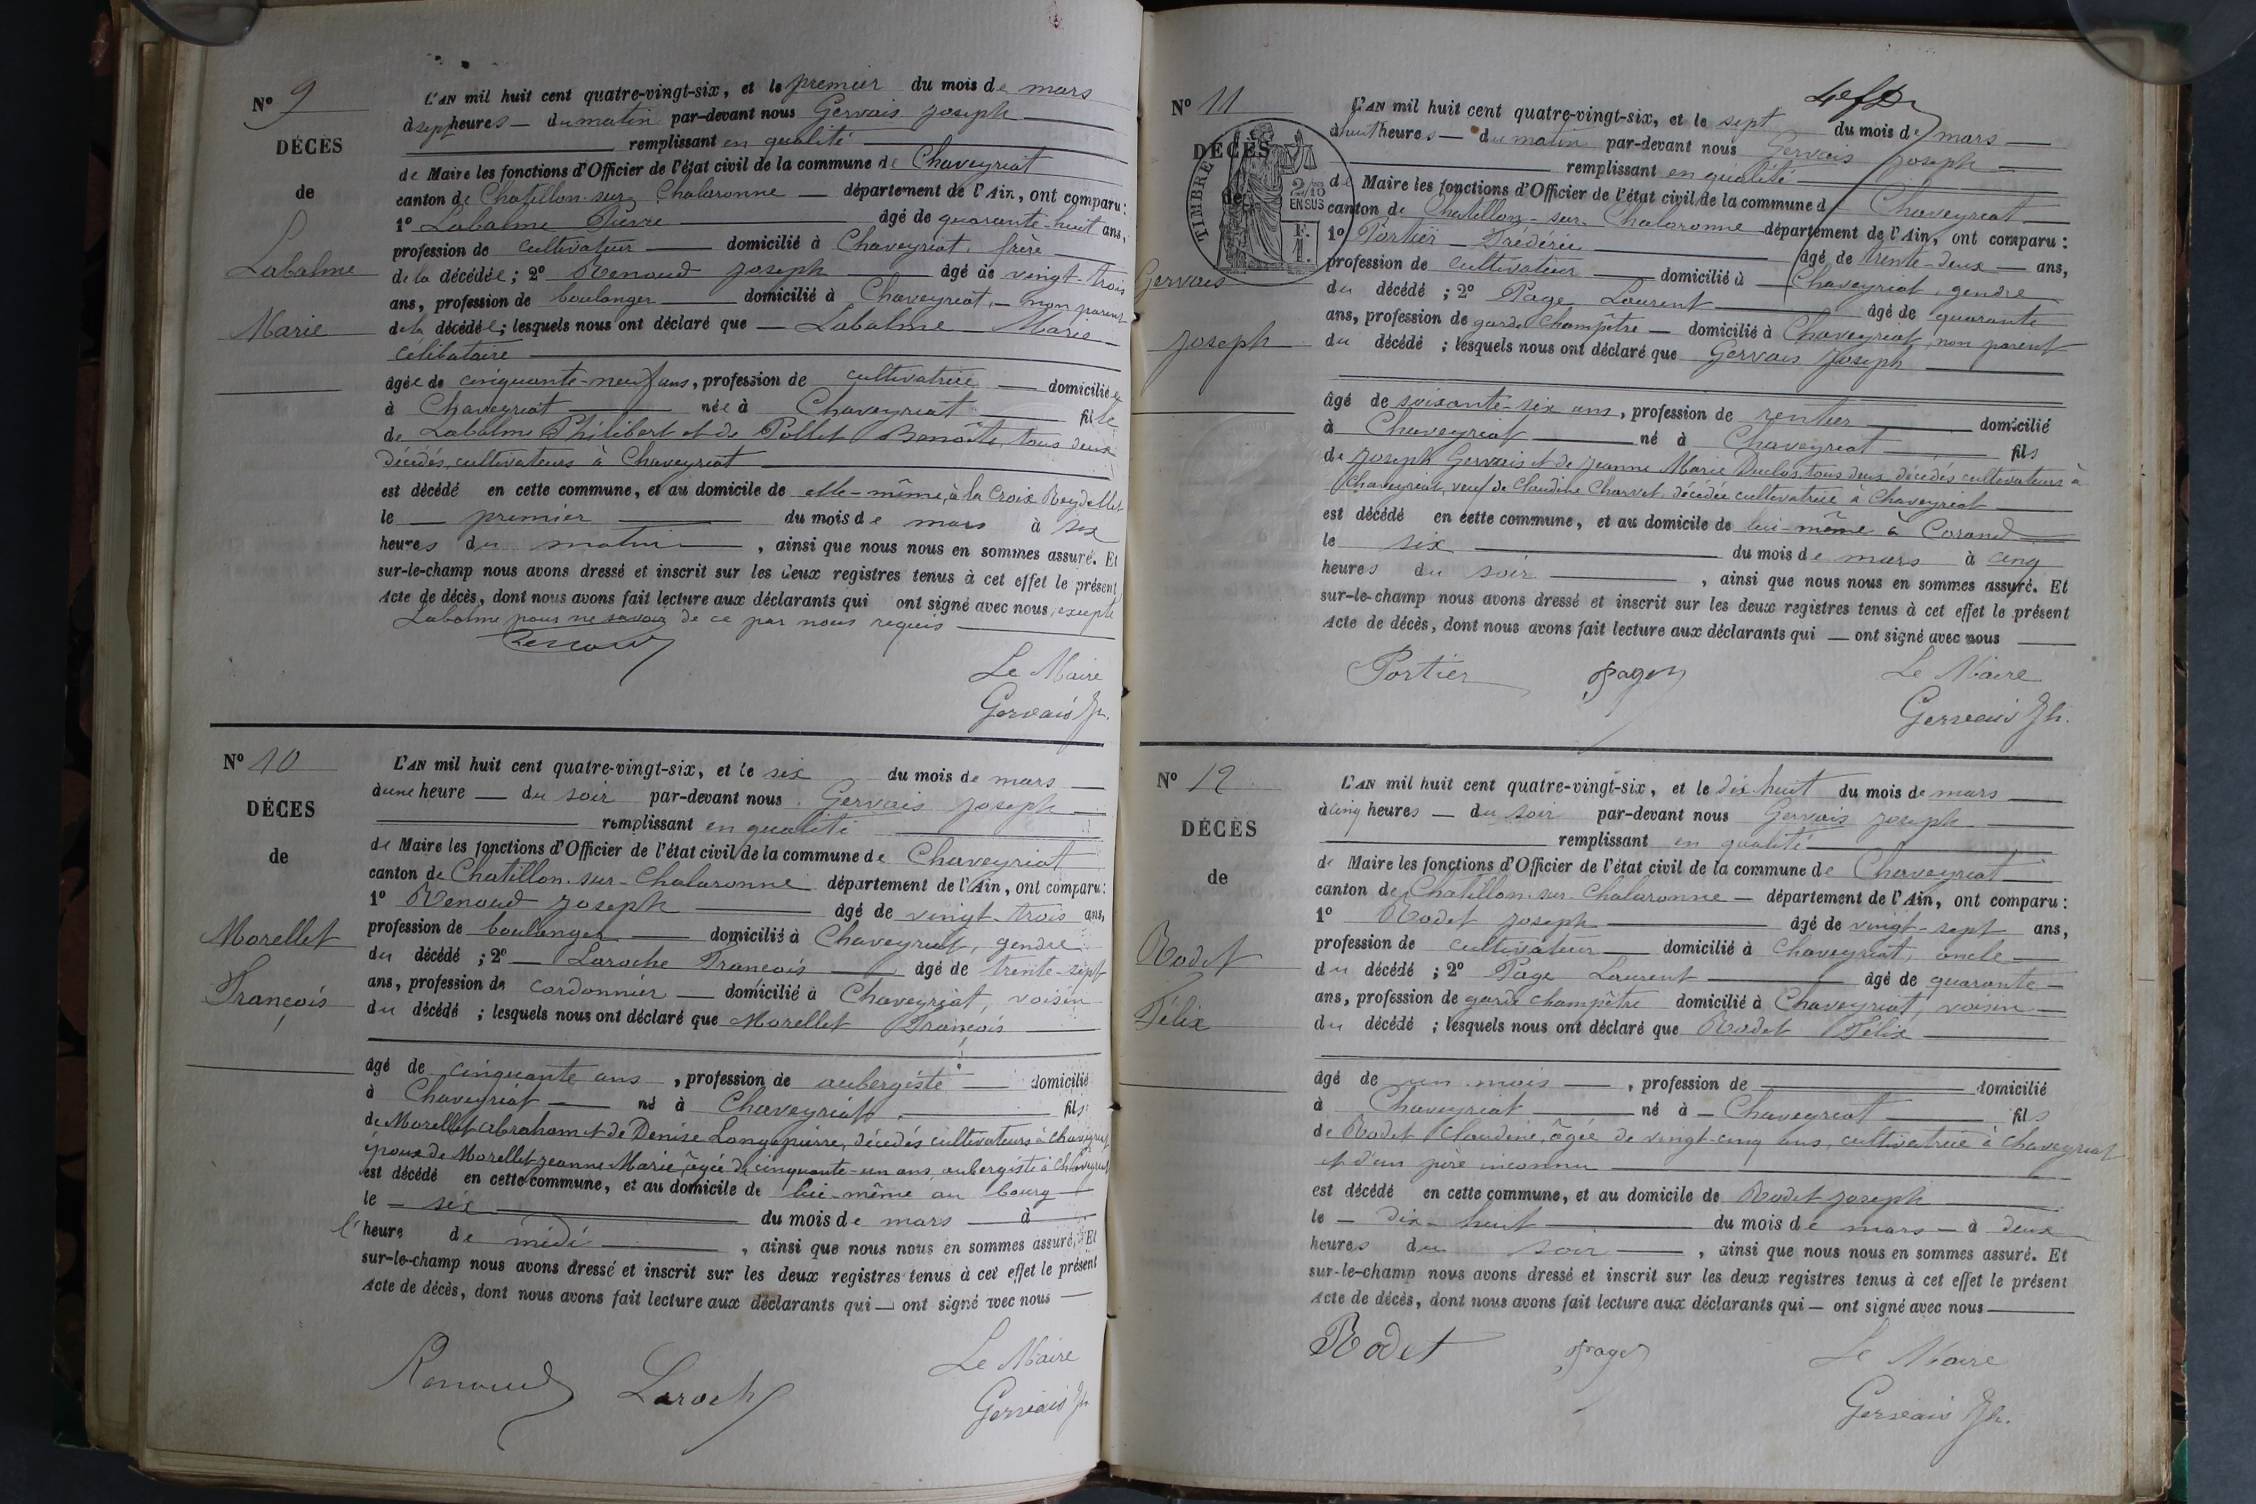 Nº 9
DÉCÈS
de
Labalme
Marie
L'AN mil huit cent quatre-vingt-six, et le premier du mois de mars
à sept heures — du matin par-devant nous Gervais Joseph
remplissant en qualité
de Maire les fonctions d'Officier de l'état civil de la commune de Chaveyriat
canton de Chatillon-sur-Chalaronne — département de l'Ain, ont comparu :
1º Labalme Pierre âgé de quarante-huit ans,
profession de cultivateur — domicilié à Chaveyriat, frère
de la décédée ; 2º Renoud Joseph — âgé de vingt-trois
ans, profession de boulanger — domicilié à Chaveyriat, — non parent
de la décédée ; lesquels nous ont déclaré que — Labalme Marie
célibataire
âgée de cinquante-neuf ans, profession de cultivatrice — domiciliée
à Chaveyriat — née à Chaveyriat — fille
de Labalme Philibert et de Pollet Benoîte, tous deux
décédés, cultivateurs à Chaveyriat
est décédé en cette commune, et au domicile de elle-même, à la Croix Reydellet
le — premier — du mois de mars à six
heures du matin — , ainsi que nous nous en sommes assuré. Et
sur-le-champ nous avons dressé et inscrit sur les deux registres tenus à cet effet le présent
Acte de décès, dont nous avons fait lecture aux déclarants qui ont signé avec nous, excepté
Labalme pour ne savoir de ce par nous requis
Renoud
Le Maire
Gervais Jh.
Nº 10
DÉCES
de
Morellet
François
L'AN mil huit cent quatre-vingt-six, et le six du mois de mars
à une heure — du soir par-devant nous Gervais Joseph
remplissant en qualité
de Maire les fonctions d'Officier de l'état civil de la commune de Chaveyriat
canton de Chatillon-sur-Chalaronne département de l'Ain, ont comparu :
1º Renoud Joseph — âgé de vingt-trois ans,
profession de boulanger — domicilié à Chaveyriat, gendre
du décédé ; 2º — Laroche François — âgé de trente-sept
ans, profession de cordonnier — domicilié à Chaveyriat, voisin
du décédé ; lesquels nous ont déclaré que Morellet François
âgé de cinquante ans —, profession de aubergiste — domicilié
à Chaveyriat — né à Chaveyriat — fils
de Morellet Abraham et de Denise Longepierre, décédés cultivateurs à Chaveyriat,
époux de Morellet Jeanne Marie, âgée de cinquante-un ans, aubergiste à Chaveyriat
est décédé en cette commune, et au domicile de lui-même au bourg
le — six — du mois de mars — à
l'heure de midi — , ainsi que nous nous en sommes assuré. Et
sur-le-champ nous avons dressé et inscrit sur les deux registres tenus à cet effet le présent
Acte de décès, dont nous avons fait lecture aux déclarants qui — ont signé avec nous —
Renoud Laroche
Le Maire
Gervais Jh
Nº 11
DÉCÈS
de
TIMBRE
2/10 EN SUS
F. 1.
Gervais
Joseph
L'AN mil huit cent quatre-vingt-six, et le sept du mois de mars —
à huit heures — du matin par-devant nous Gervais Joseph —
remplissant en qualité
de Maire les fonctions d'Officier de l'état civil de la commune d Chaveyriat
canton de Chatillon-sur-Chalaronne département de l'Ain, ont comparu :
1º Portier Frédéric — âgé de trente-deux — ans,
profession de cultivateur — domicilié à Chaveyriat, gendre
du décédé ; 2º Page Laurent — âgé de quarante
ans, profession de garde champêtre — domicilié à Chaveyriat, non parent
du décédé ; lesquels nous ont déclaré que Gervais Joseph
âgé de soixante-six ans, profession de rentier — domicilié
à Chaveyriat — né à Chaveyriat — fils
de Joseph Gervais et de Jeanne Marie Duclos, tous deux décédés cultivateurs à
Chaveyriat, veuf de Claudine Charvet, décédée cultivatrice à Chaveyriat
est décédé en cette commune, et au domicile de lui-même à Corand
le six — du mois de mars à cinq
heures du soir — , ainsi que nous nous en sommes assuré. Et
sur-le-champ nous avons dressé et inscrit sur les deux registres tenus à cet effet le présent
Acte de décès, dont nous avons fait lecture aux déclarants qui — ont signé avec nous —
Portier Page
Le Maire
Gervais Jh.
Nº 12
DÉCÈS
de
Rodet
Félix
L'AN mil huit cent quatre-vingt-six, et le dix-huit du mois de mars —
à cinq heures — du soir par-devant nous Gervais Joseph —
remplissant en qualité
de Maire les fonctions d'Officier de l'état civil de la commune de Chaveyriat
canton de Chatillon-sur-Chalaronne — département de l'Ain, ont comparu :
1º Rodet Joseph — âgé de vingt-sept ans,
profession de cultivateur — domicilié à Chaveyriat, oncle —
du décédé ; 2º Page Laurent — âgé de quarante —
ans, profession de garde champêtre domicilié à Chaveyriat, voisin —
du décédé ; lesquels nous ont déclaré que Rodet Félix
âgé de un mois — , profession de — domicilié
à Chaveyriat — né à — Chaveyriat — fils
de Rodet Claudine, âgée de vingt-cinq ans, cultivatrice à Chaveyriat
et d'un père inconnu
est décédé en cette commune, et au domicile de Rodet Joseph
le — dix-huit — du mois de mars — à deux
heures du soir — , ainsi que nous nous en sommes assuré. Et
sur-le-champ nous avons dressé et inscrit sur les deux registres tenus à cet effet le présent
Acte de décès, dont nous avons fait lecture aux déclarants qui — ont signé avec nous —
Rodet Page
Le Maire
Gervais Jh.